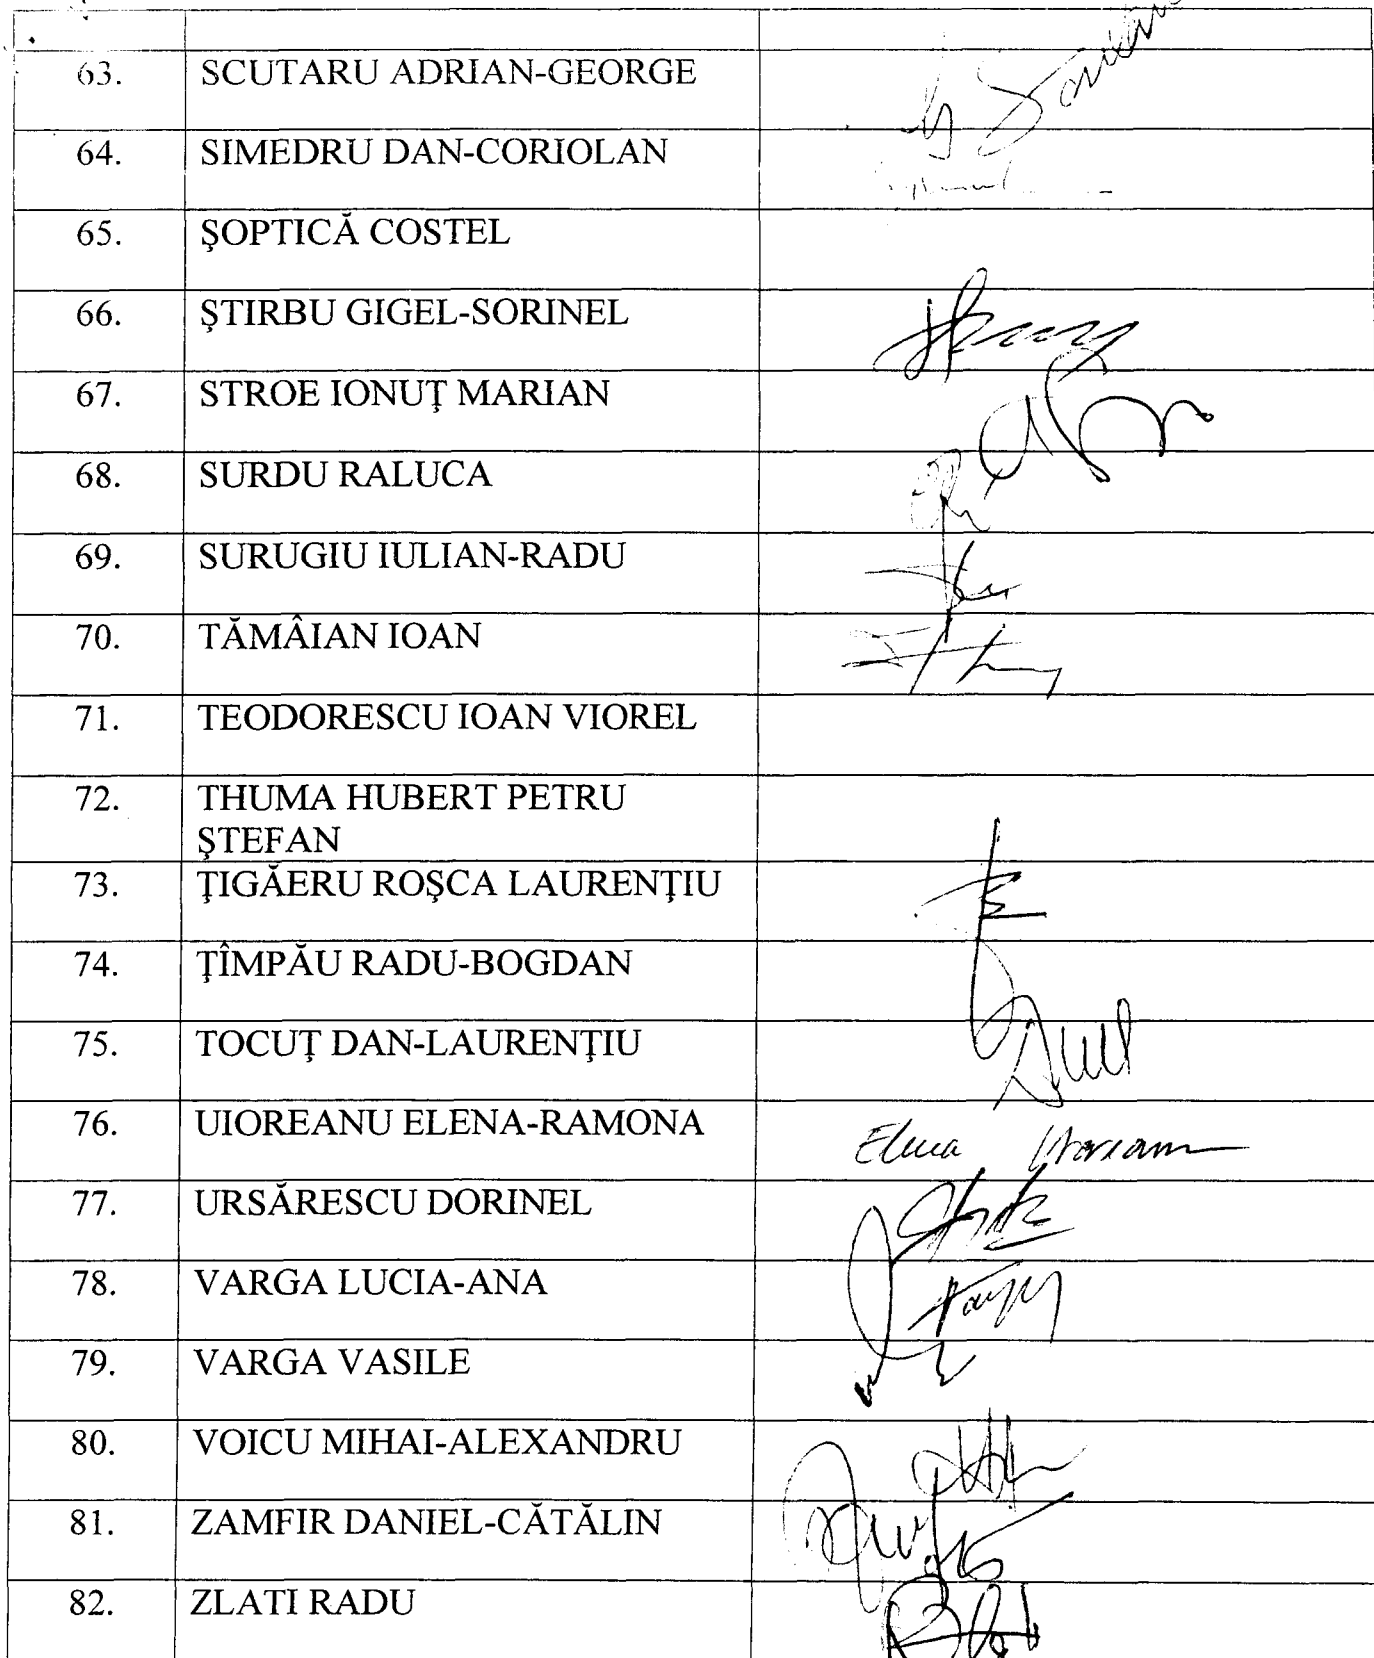 63. SCUTARU ADRIAN-GEORGE
64. SIMEDRU DAN-CORIOLAN
65. ŞOPTICĂ COSTEL
66. ŞTIRBU GIGEL-SORINEL
67. STROE IONUŢ MARIAN
68. SURDU RALUCA
69. SURUGIU IULIAN-RADU
70. TĂMÂIAN IOAN
71. TEODORESCU IOAN VIOREL
72. THUMA HUBERT PETRU
ŞTEFAN
73. ŢIGĂERU ROŞCA LAURENŢIU
74. ŢÎMPĂU RADU-BOGDAN
75. TOCUŢ DAN-LAURENŢIU
76. UIOREANU ELENA-RAMONA Elena
77. URSĂRESCU DORINEL
78. VARGA LUCIA-ANA
79. VARGA VASILE
80. VOICU MIHAI-ALEXANDRU
81. ZAMFIR DANIEL-CĂTĂLIN
82. ZLATI RADU